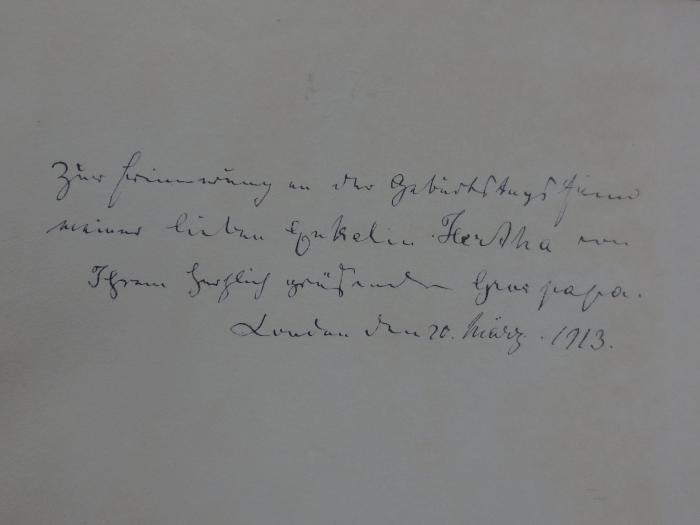 Zur Erinnerung an der Geburtstagsfeier
meiner lieben Enkelin Hertha von
Ihrem herzlich grüßenden Grospapa.
London den 20. März. 1913.